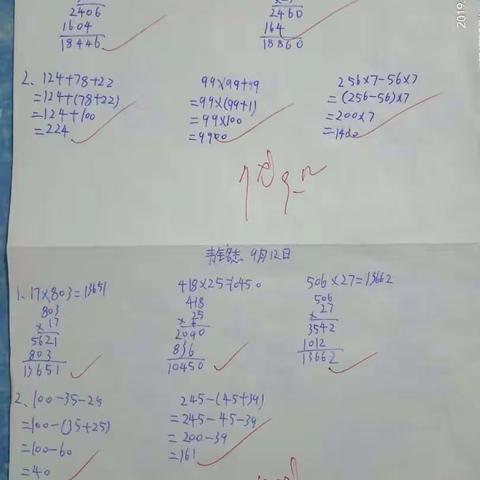 2406
1604
18446
2460
164
18860
2、124+78+22
=124+(78+22)
=124+100
=224
99×99+99
=99×(99+1)
=99×100
=9900
256×7-56×7
=(256-56)×7
=200×7
=1400
9月12日
1、17×803=13651
803
×17
5621
803
13651
418×25=10450
418
×25
2090
836
10450
506×27=13662
506
×27
3542
1012
13662
2、100-35-25
=100-(35+25)
=100-60
=40
245-(45+39)
=245-45-39
=200-39
=161
2019.